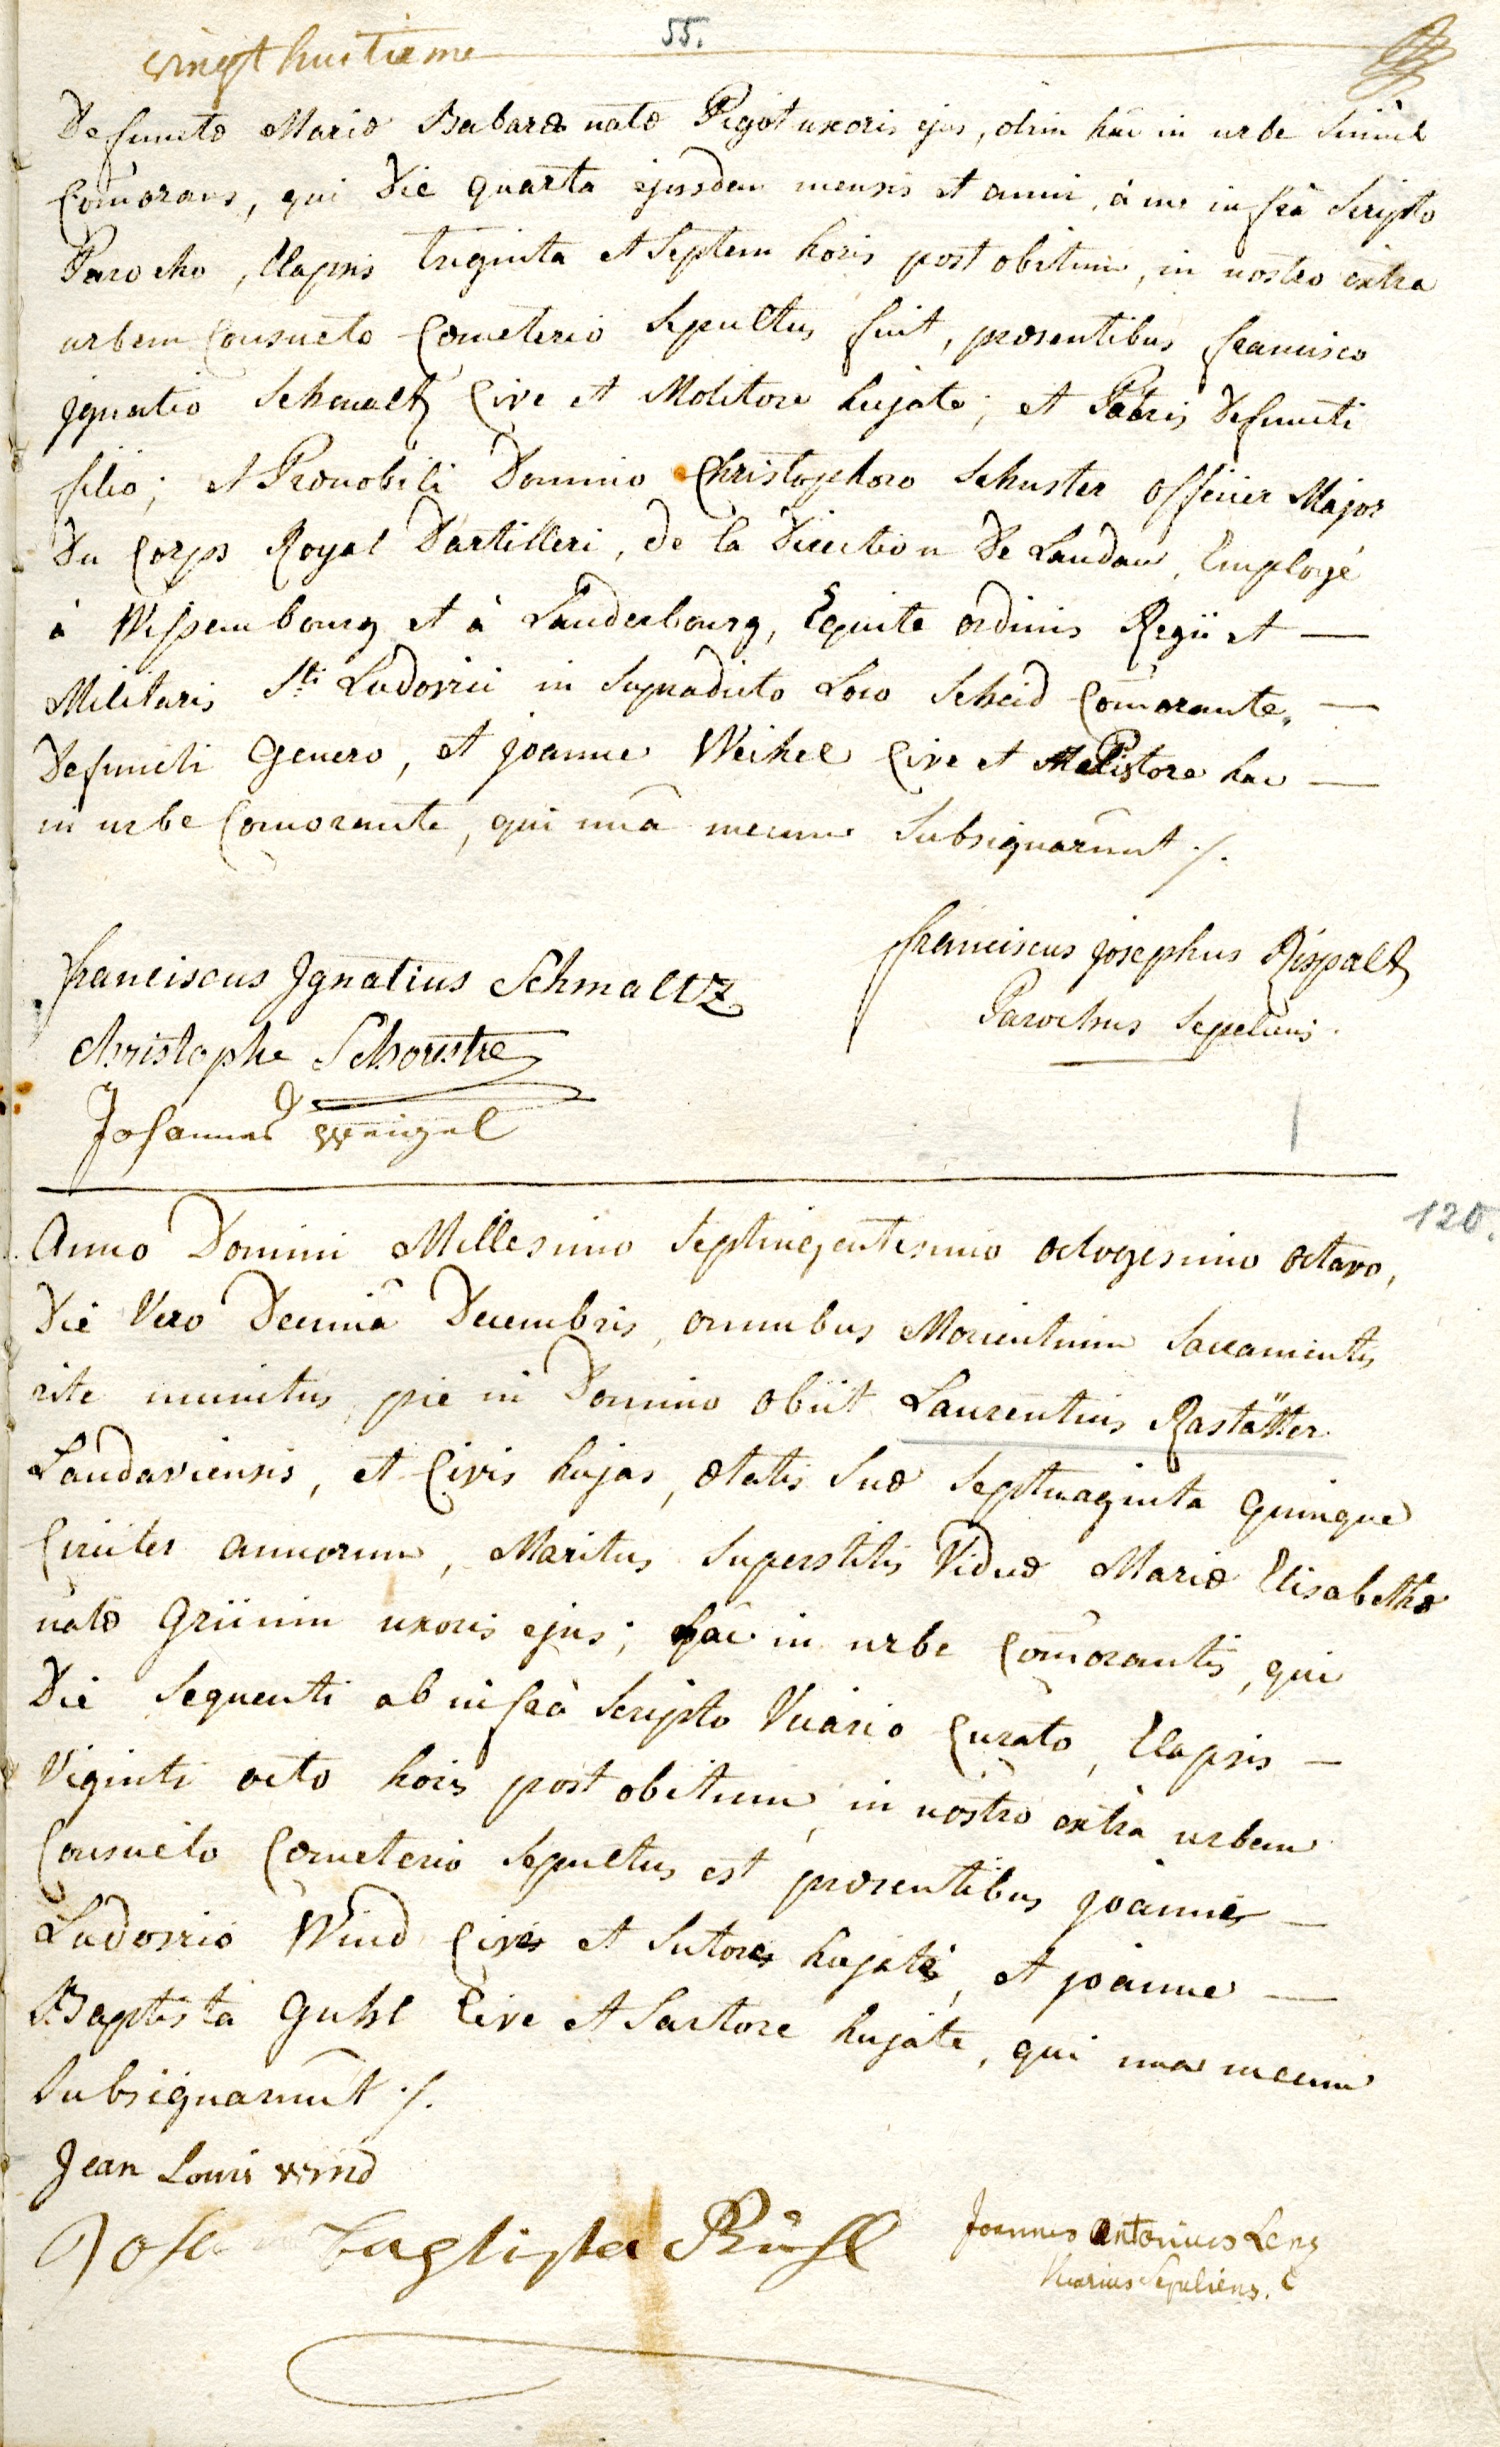 55.
vingt huitieme
Defunctæ Mariæ Babaræ natæ Pigot uxoris ejus, olim hâc in urbe Simul
Com̄orans, qui Die quarta ejusdem mensis et anni, à me infrà Scripto
Parocho, Elapsis triginta et Septem horis post obitum, in nostro extra
urbem Consueto Cœmeterio Sepultus fuit, præsentibus francisco
jgnatio Schmaltz Cive et Molitore hujate; et Patris Defuncti
filio; et Prænobili Domino Christophoro Schuster officier Major
Du Corps Royal D'artilleri, de la Direction De Landau, Employé
à Wissembourg et à Lauderbourg, Equite ordinis Regii et —
Militaris Sti. Ludovici in Supradicto Loco Scheid Com̄orante, —
Defuncti Genero, et joanne Weikel Cive et Pistore hac —
in urbe Com̄orante, qui unâ mecum Subsignarunt ./.
franciscus Jgnatius Schmaltz
franciscus josephus Rispaltz
Parochus Sepeliens.
christophe Schoustre
Johannes Weigel
120.
Anno Domini Millesimo Septingentesimo octogesimo octavo,
Die Vero Decimâ Decembris, omnibus Morientium Sacramentis
rite munitus, pie in Domino obiit Laurentius Rastätter
Landaviensis, et Civis hujas, ætatis Suæ Septuaginta quinque
Circiter annorum, Maritus Superstitis Viduæ Mariæ Elisabethæ
natæ Grünin uxoris ejus; hâc in urbe Com̄orantis, qui
Die Sequenti ab infrà Scripto Vicario Curato, Elapsis —
Viginti octo horis post obitum, in nostro extra urbem
Consueto Cœmeterio Sepultus est præsentibus joanne —
Ludovico Wind Cive et Sutore hujate, et joanne —
Baptista Guhl Cive et Sartore hujate, qui una mecum
Subsignarunt ./.
Jean Louis wind
Baptista
Joannes Antonius Leng
Vicarius Sepeliens.